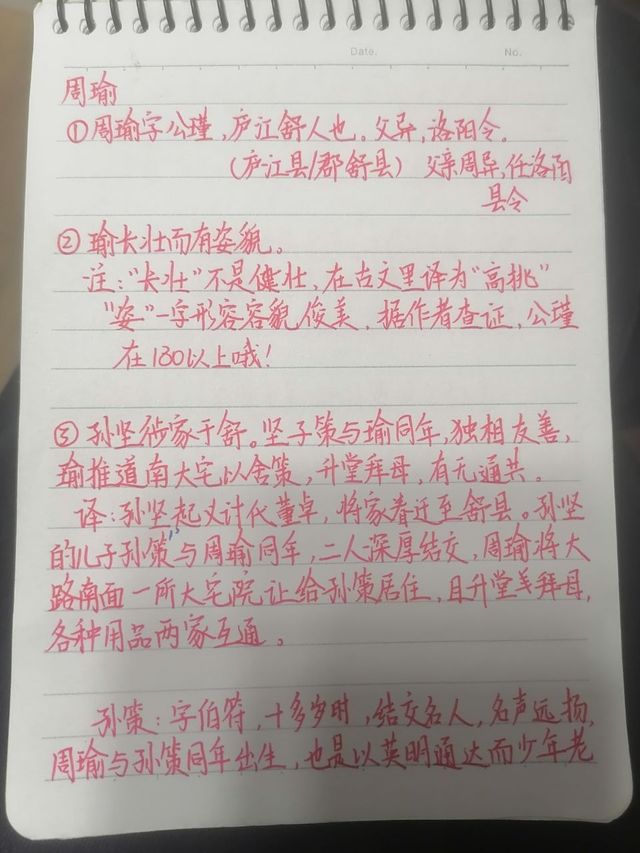 Date.
No.
周瑜
①周瑜字公瑾,庐江舒人也。父异,洛阳令。
(庐江县/郡舒县) 父亲周异,任洛阳
县令
②瑜长壮而有姿貌。
注:“长壮”不是健壮,在古文里译为“高挑”
“姿”一字形容容貌俊美,据作者查证,公瑾
在180以上哦!
③孙坚徙家于舒。坚子策与瑜同年,独相友善,
瑜推道南大宅以舍策,升堂拜母,有无通共。
译:孙坚起义讨伐董卓,将家眷迁至舒县。孙坚
的儿子孙策与周瑜同年,二人深厚结交,周瑜将大
路南面一所大宅院让给孙策居住,且升堂拜母,
各种用品两家互通。
孙策:字伯符,十多岁时,结交名人,名声远扬,
周瑜与孙策同年出生,也是以英明通达而少年老